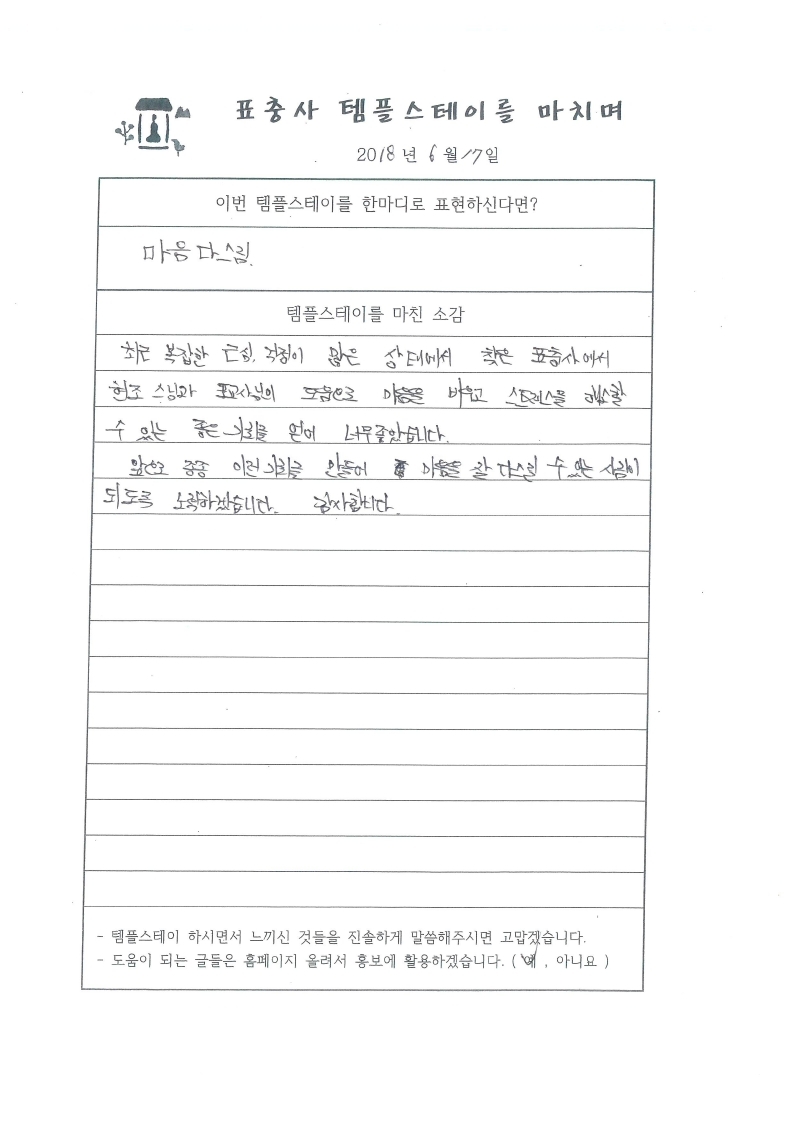 표충사 템플스테이를 마치며
2018년 6월 17일
이번 템플스테이를 한마디로 표현하신다면?
마음 다스림.
템플스테이를 마친 소감
최근 복잡한 근심, 걱정이 많은 상태에서 찾은 표충사에서
현조 스님과 포교사님의 도움으로 마음을 비우고 스트레스를 해소할
수 있는 좋은 기회를 얻어 너무좋았습니다.
앞으로 종종 이런 기회를 만들어 마음을 잘 다스릴 수 있는 사람이
되도록 노력하겠습니다. 감사합니다.
- 템플스테이 하시면서 느끼신 것들을 진솔하게 말씀해주시면 고맙겠습니다.
- 도움이 되는 글들은 홈페이지 올려서 홍보에 활용하겠습니다. ( 예 , 아니요 )